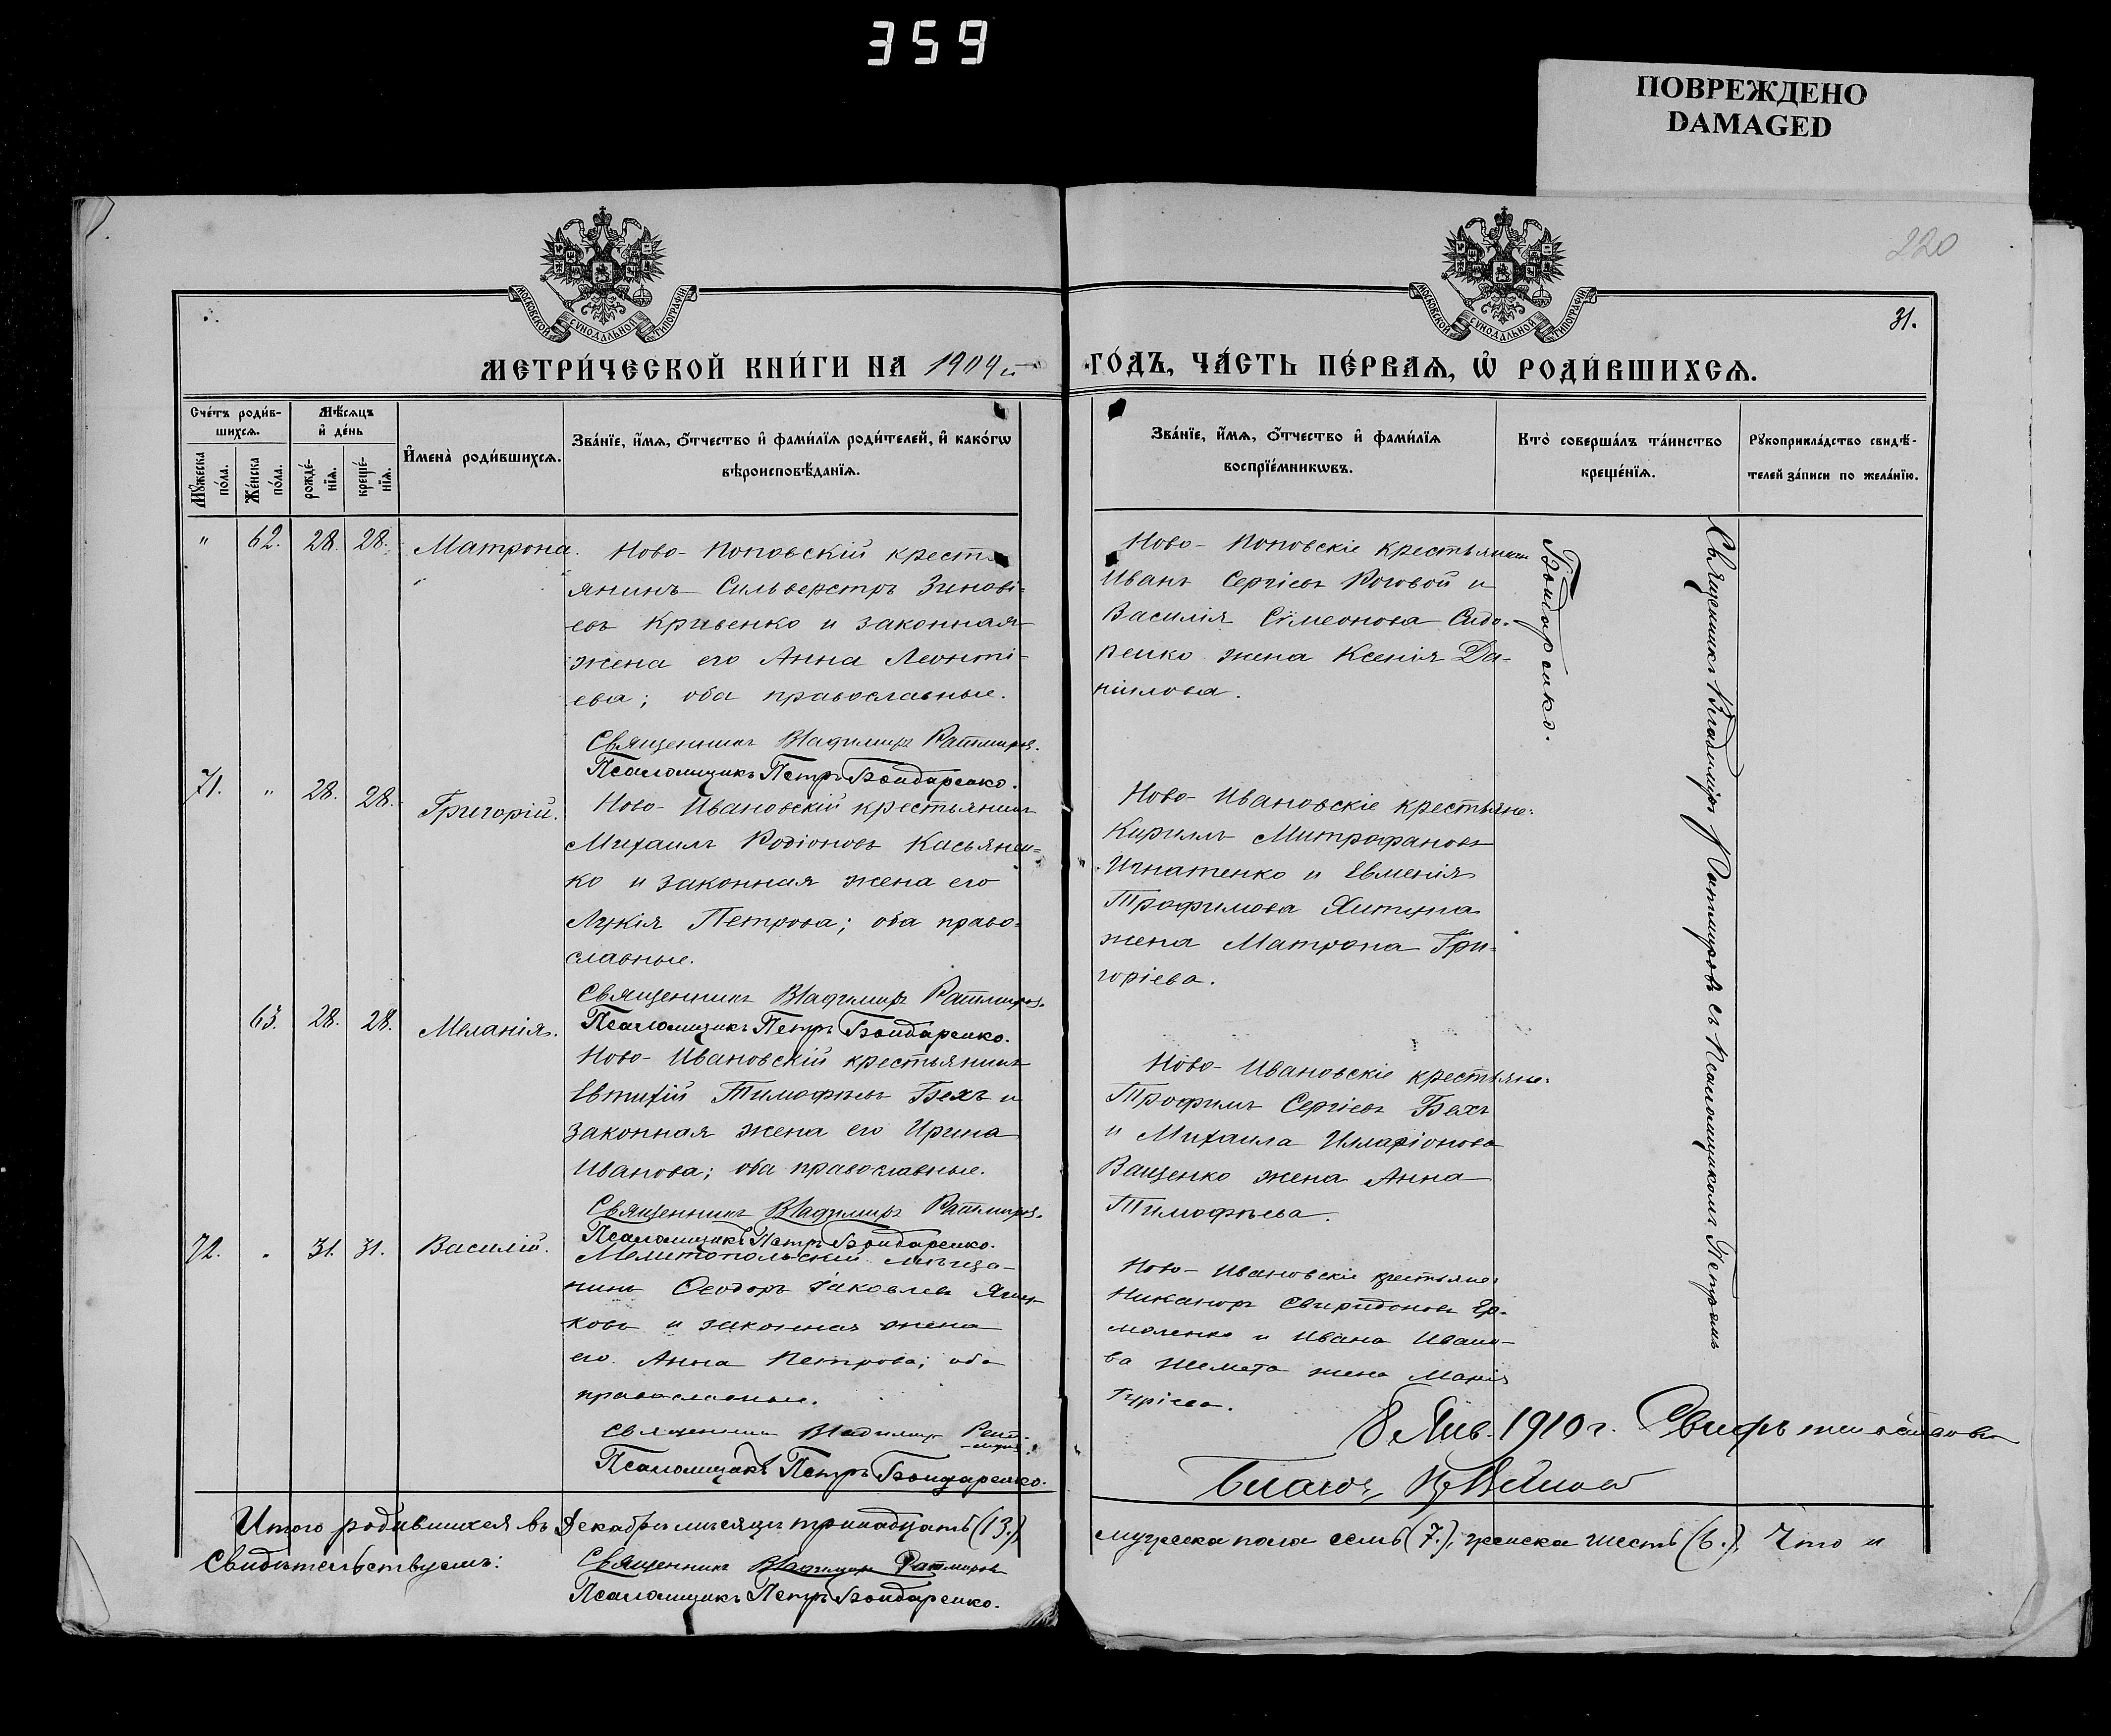 359
ПОВРЕЖДЕНО
DAMAGED
220
31.
МОСКОВСКОЙ СѴНОДАЛЬНОЙ ТИПОГРАФІИ
МОСКОВСКОЙ СѴНОДАЛЬНОЙ ТИПОГРАФІИ
МЕТРИ́ЧЕСКОЙ КНИ́ГИ НА 1909й
ГО́ДЪ, ЧА́СТЬ ПЕ́РВАѦ, Ѡ҆ РОДИ́ВШИХСѦ.
Сче́тъ роди́в-
шихсѧ.
Мѣ́сѧцъ
и҆ де́нь
Мꙋ́жеска
по́ла.
Же́нска
по́ла.
рожде́-
нїѧ.
креще́-
нїѧ.
И҆мена̀ роди́вшихсѧ.
Зва́нїе, и҆́мѧ, о҆́тчество и҆ фами́лїѧ роди́телей, и҆ како́гѡ
вѣроисповѣ́данїѧ.
Зва́нїе, и҆́мѧ, о҆́тчество и҆ фами́лїѧ
воспрїе́мникѡвъ.
Кто̀ соверша́лъ та́инство
креще́нїѧ.
Рꙋкоприкла́дство свидѣ́-
телей за́писи по жела́нїю.
" 62. 28. 28. Матрона.
Ново-Поповскій кресть-
янинъ Сильверстръ Зиновi-
евъ Кривенко и законная
жена его Анна Леонтi-
ева; оба православные.
Священникъ Владимиръ Ратмировъ.
Псаломщикъ Петръ Бондаренко.
Ново-Поповскіе крестьяне:
Иванъ Сергіевъ Роговой и
Василія Сімеонова Сидо-
ренко жена Ксенія Да-
ніилова.
71. " 28. 28. Григорій.
Ново-Ивановскій крестьянинъ
Михаилъ Родіоновъ Касьянен-
ко и законная жена его
Лукія Петрова; оба право-
славные.
Священникъ Владимиръ Ратмировъ.
Псаломщикъ Петръ Бондаренко.
Ново-Ивановскіе крестьяне:
Кириллъ Митрофановъ
Игнатенко и Евменія
Трофимова
жена Матрона Гри-
горіева.
63. 28. 28. Меланія.
Ново-Ивановскій крестьянинъ
Евтихій Тимофѣевъ Бехъ и
законная жена его Ирина
Иванова; оба православные.
Священникъ Владимиръ Ратмировъ.
Псаломщикъ Петръ Бондаренко.
Ново-Ивановскіе крестьяне:
Трофимъ Сергіевъ Бехъ
и Михаила Иларіонова
Ващенко жена Анна
Тимофѣева.
72. " 31. 31. Василій.
Мелитопольскій мѣща-
нинъ Ѳеодоръ Іаковлевъ
ковъ и законная жена
его Анна Петрова; оба
православные.
Священникъ Владимиръ Рат-
мировъ.
Псаломщикъ Петръ Бондаренко.
Ново-Ивановскіе крестьяне:
Никаноръ Свиридоновъ Ер-
моленко и Ивана Ивано-
ва Шемета жена Марія
Гуріева.
Священникъ Владиміръ Ратмировъ съ псаломщикомъ Петромъ
Бондаренко.
8 Янв. 1910 г.
Благоч.
Итого родившихся въ Декабрѣ мѣсяцѣ тринадцать (13.),
мужеска пола семь (7.), женска шесть (6.). Что и
Свидѣтельствуемъ:
Священникъ Владимиръ Ратмировъ
Псаломщикъ Петръ Бондаренко.